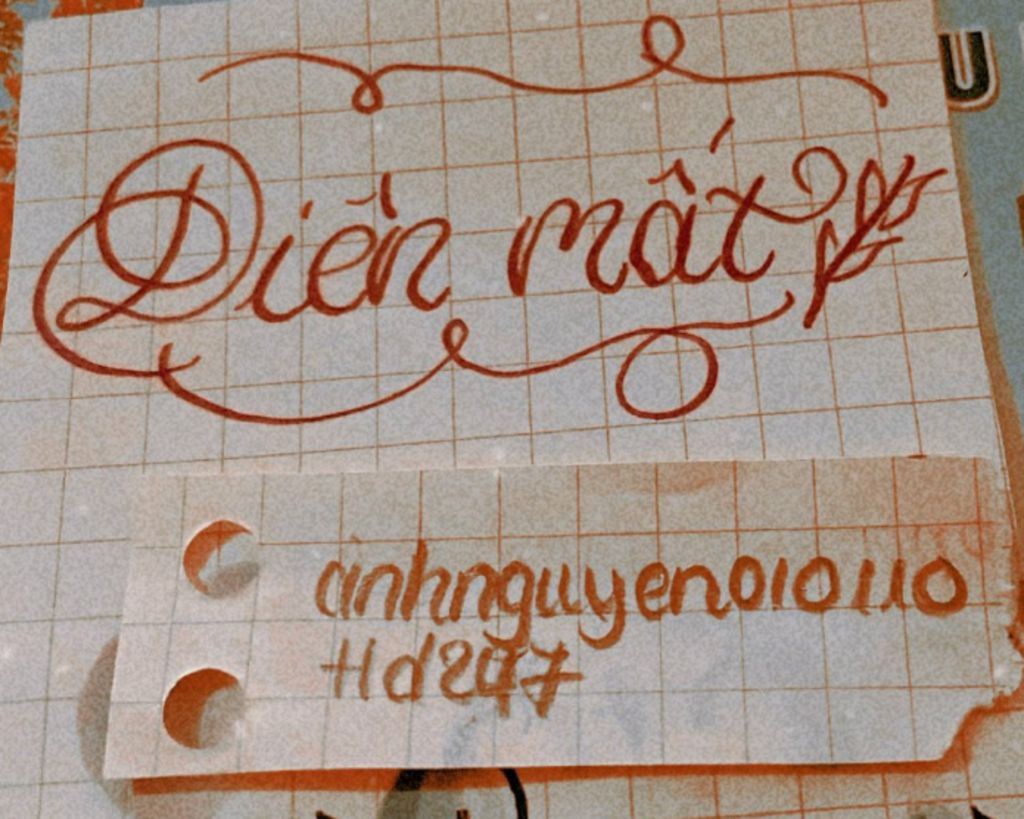 Diền mất
U
anhnguyen010110
Hd247